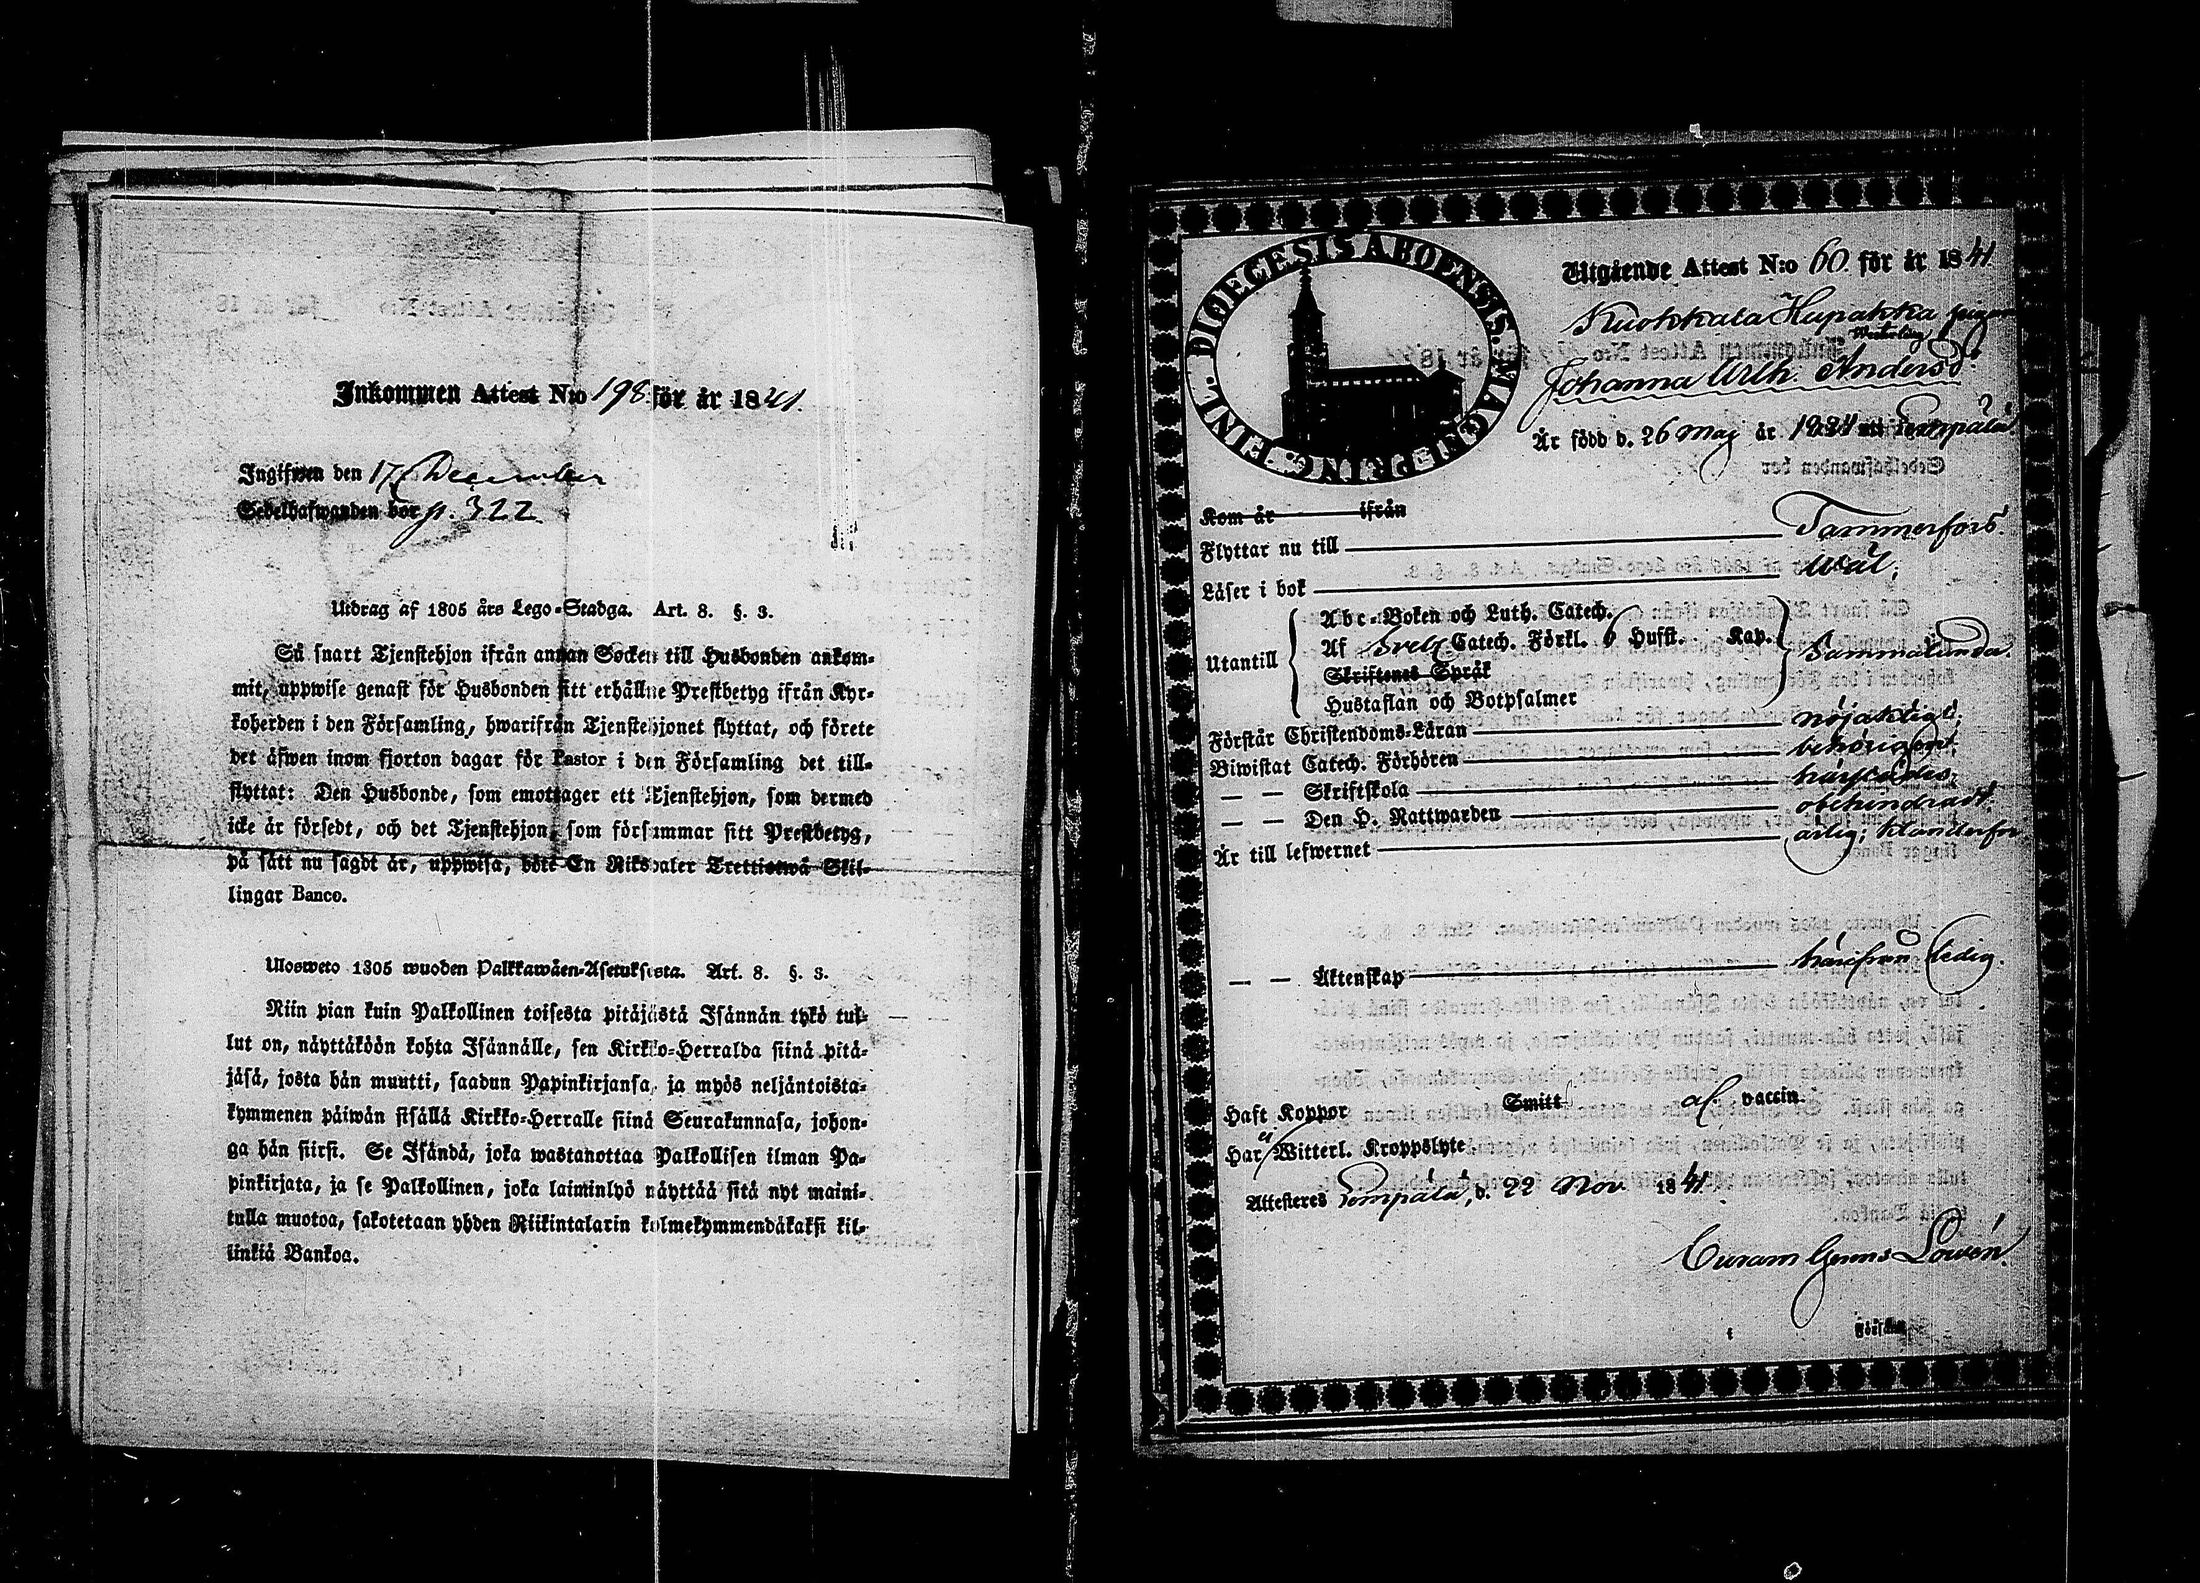 Inkommen Attest N:o 198. för år 1841.
Ingifwen den 17 December
Sedelhafwanden bor p. 322
Utdrag af 1805 års Lego-Stadga. Art. 8. §. 3.
Så snart Tjenstehjon ifrån annan Socken till Husbonden ankom-
mit, uppwise genast för Husbonden sitt erhållne Prestbetyg ifrån Kyr-
koherden i den Församling, hwarifrån Tjenstehjonet flyttat, och förete
det äfwen inom fjorton dagar för Pastor i den Församling det till-
flyttat: Den Husbonde, som emottager ett Tjenstehjon, som dermed
icke är försedt, och det Tjenstehjon, som försummar sitt Prestbetyg,
på sätt nu sagdt är, uppwisa, böte En Riksdaler Trettiotwå Skil-
lingar Banco.
Ulosweto 1805 wuoden Palkkawäen-Asetuksesta. Art. 8. §. 3.
Niin pian kuin Palkollinen toisesta pitäjästä Isännän tykö tul-
lut on, näyttäköön kohta Isännälle, sen Kirkko-Herralda siinä pitä-
jäsä, josta hän muutti, saadun Papinkirjansa, ja myös neljäntoista-
kymmenen päiwän sisällä Kirkko-Herralle siinä Seurakunnasa, johon-
ga hän siirsi. Se Isändä, joka wastanottaa Palkollisen ilman Pa-
pinkirjata, ja se Palkollinen, joka laiminlyö näyttää sitä nyt maini-
tulla muotoa, sakotetaan yhden Riikintalarin kolmekymmendäkaksi kil-
linkiä Bankoa.
DIOECESIS ABOENSIS. MAGNI PRINC. FINL.
Utgående Attest N:o 60. för år 1841
Kuokkala Hupakka pigan
Johanna Wilh. Andersd.
Är född d. 26 Maj år 1824 i Lempälä
Kom år ifrån
Flyttar nu till Tammerfors.
Läser i bok wäl;
Abc-Boken och Luth. Catech.
Utantill Af Sveb. Catech. Förkl. 6 Hufst. Kap. Sammalunda.
Skriftenes Språk
Hustaflan och Botpsalmer
Förstår Christendoms-Läran nöjaktigt;
Biwistat Catech. Förhören behörigent.
— — Skriftskola härstädes;
— — Den H. Nattwarden obehindradt.
Är till lefwernet ärlig; klanderfri
— — Äktenskap härifrån ledig.
Haft Koppor Smitt af vaccin.
Har ej Witterl. Kroppslyte
Attesteres Lempälä, d. 22 Nov. 1841
Curam Gerens Lowén.